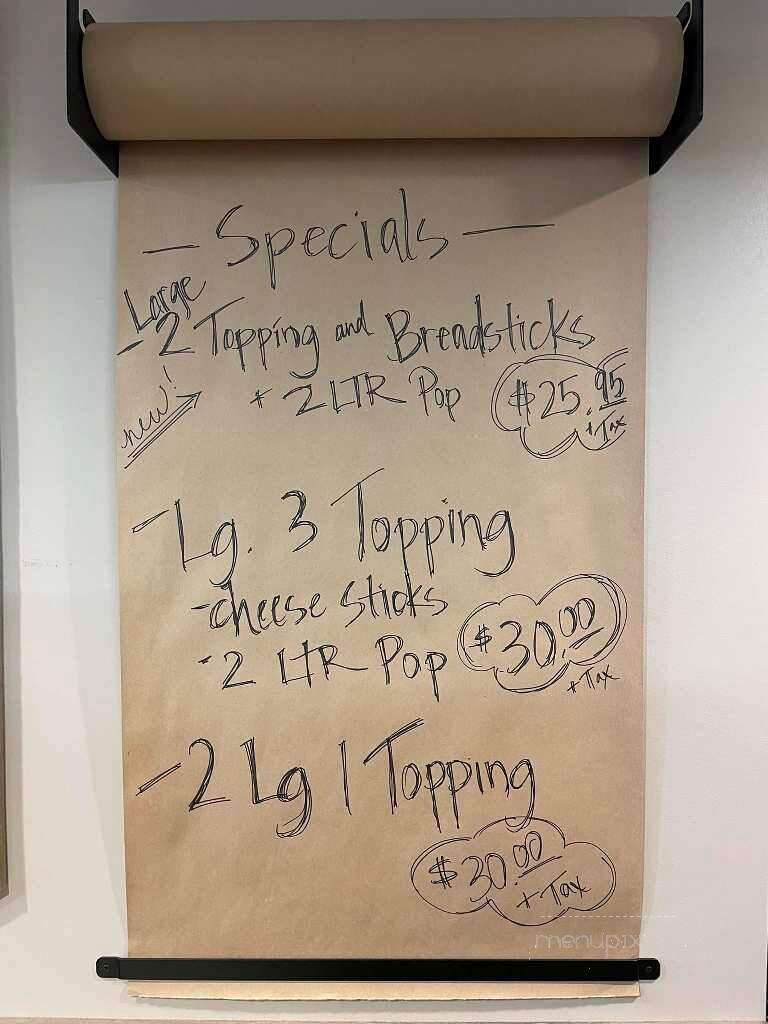 — Specials —
Large
- 2 Topping and Breadsticks
new!
+ 2 LTR Pop
$25.95
+ Tax
- Lg. 3 Topping
- cheese sticks
- 2 LTR Pop
$30.00
+ Tax
- 2 Lg 1 Topping
$30.00
+ Tax
menupix